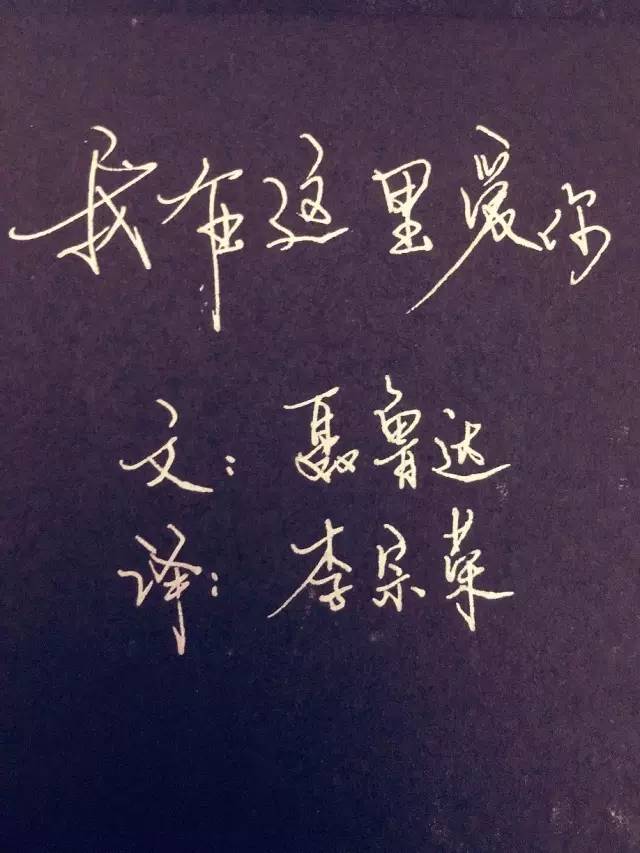 我在这里爱你
文：聂鲁达
译：李宗荣